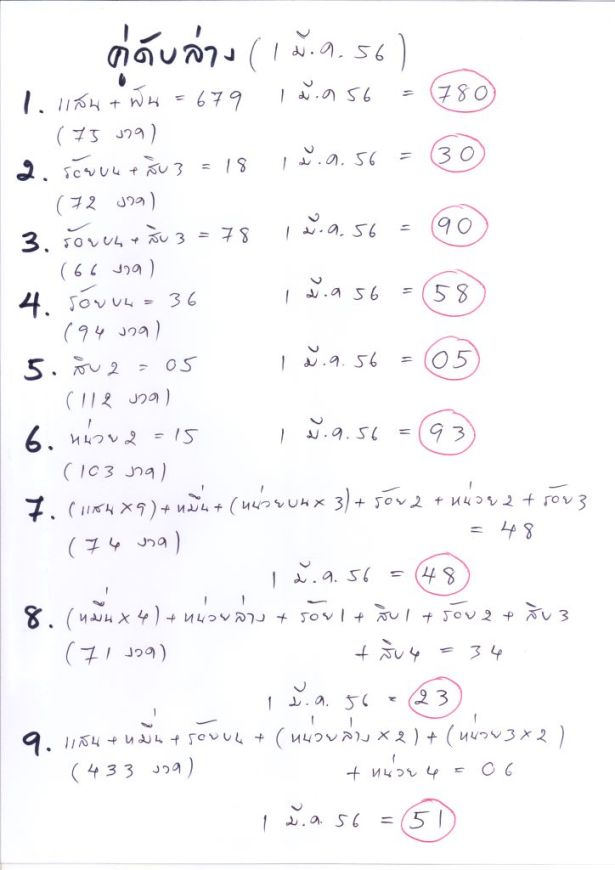 คู่ดับล่าง (1 มี.ค. 56)
1. แสน + พัน = 679 1 มี.ค 56 = 780
(75 งวด)
2. ร้อยบน + สิบ 3 = 18 1 มี.ค. 56 = 30
(72 งวด)
3. ร้อยบน + สิบ 3 = 78 1 มี.ค. 56 = 90
(66 งวด)
4. ร้อยบน = 36 1 มี.ค 56 = 58
(94 งวด)
5. สิบ 2 = 05 1 มี.ค. 56 = 05
(112 งวด)
6. หน่วย 2 = 15 1 มี.ค. 56 = 93
(103 งวด)
7. (แสน x 9) + หมื่น + (หน่วยบน x 3) + ร้อย 2 + หน่วย 2 + ร้อย 3
(74 งวด) = 48
1 มี.ค. 56 = 48
8. (หมื่น x 4) + หน่วยล่าง + ร้อย 1 + สิบ 1 + ร้อย 2 + สิบ 3
(71 งวด) + สิบ 4 = 34
1 มี.ค. 56 = 23
9. แสน + หมื่น + ร้อยบน + (หน่วยล่าง x 2) + (หน่วย 3 x 2)
(433 งวด) + หน่วย 4 = 06
1 มี.ค. 56 = 51